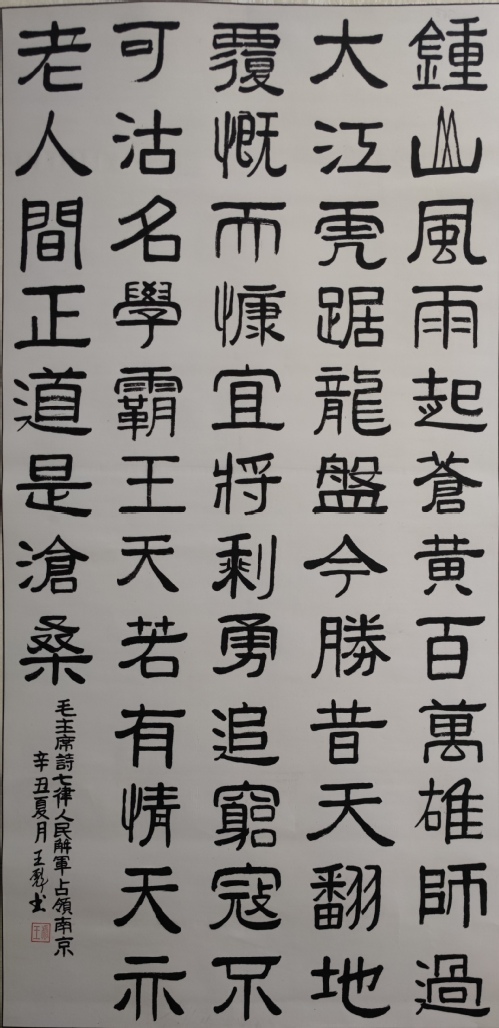 鍾山風雨起蒼黃百萬雄師過
大江虎踞龍盤今勝昔天翻地
覆慨而慷宜將剩勇追窮寇不
可沽名學霸王天若有情天亦
老人間正道是滄桑
毛主席詩七律人民解軍占領南京
辛丑夏月王书